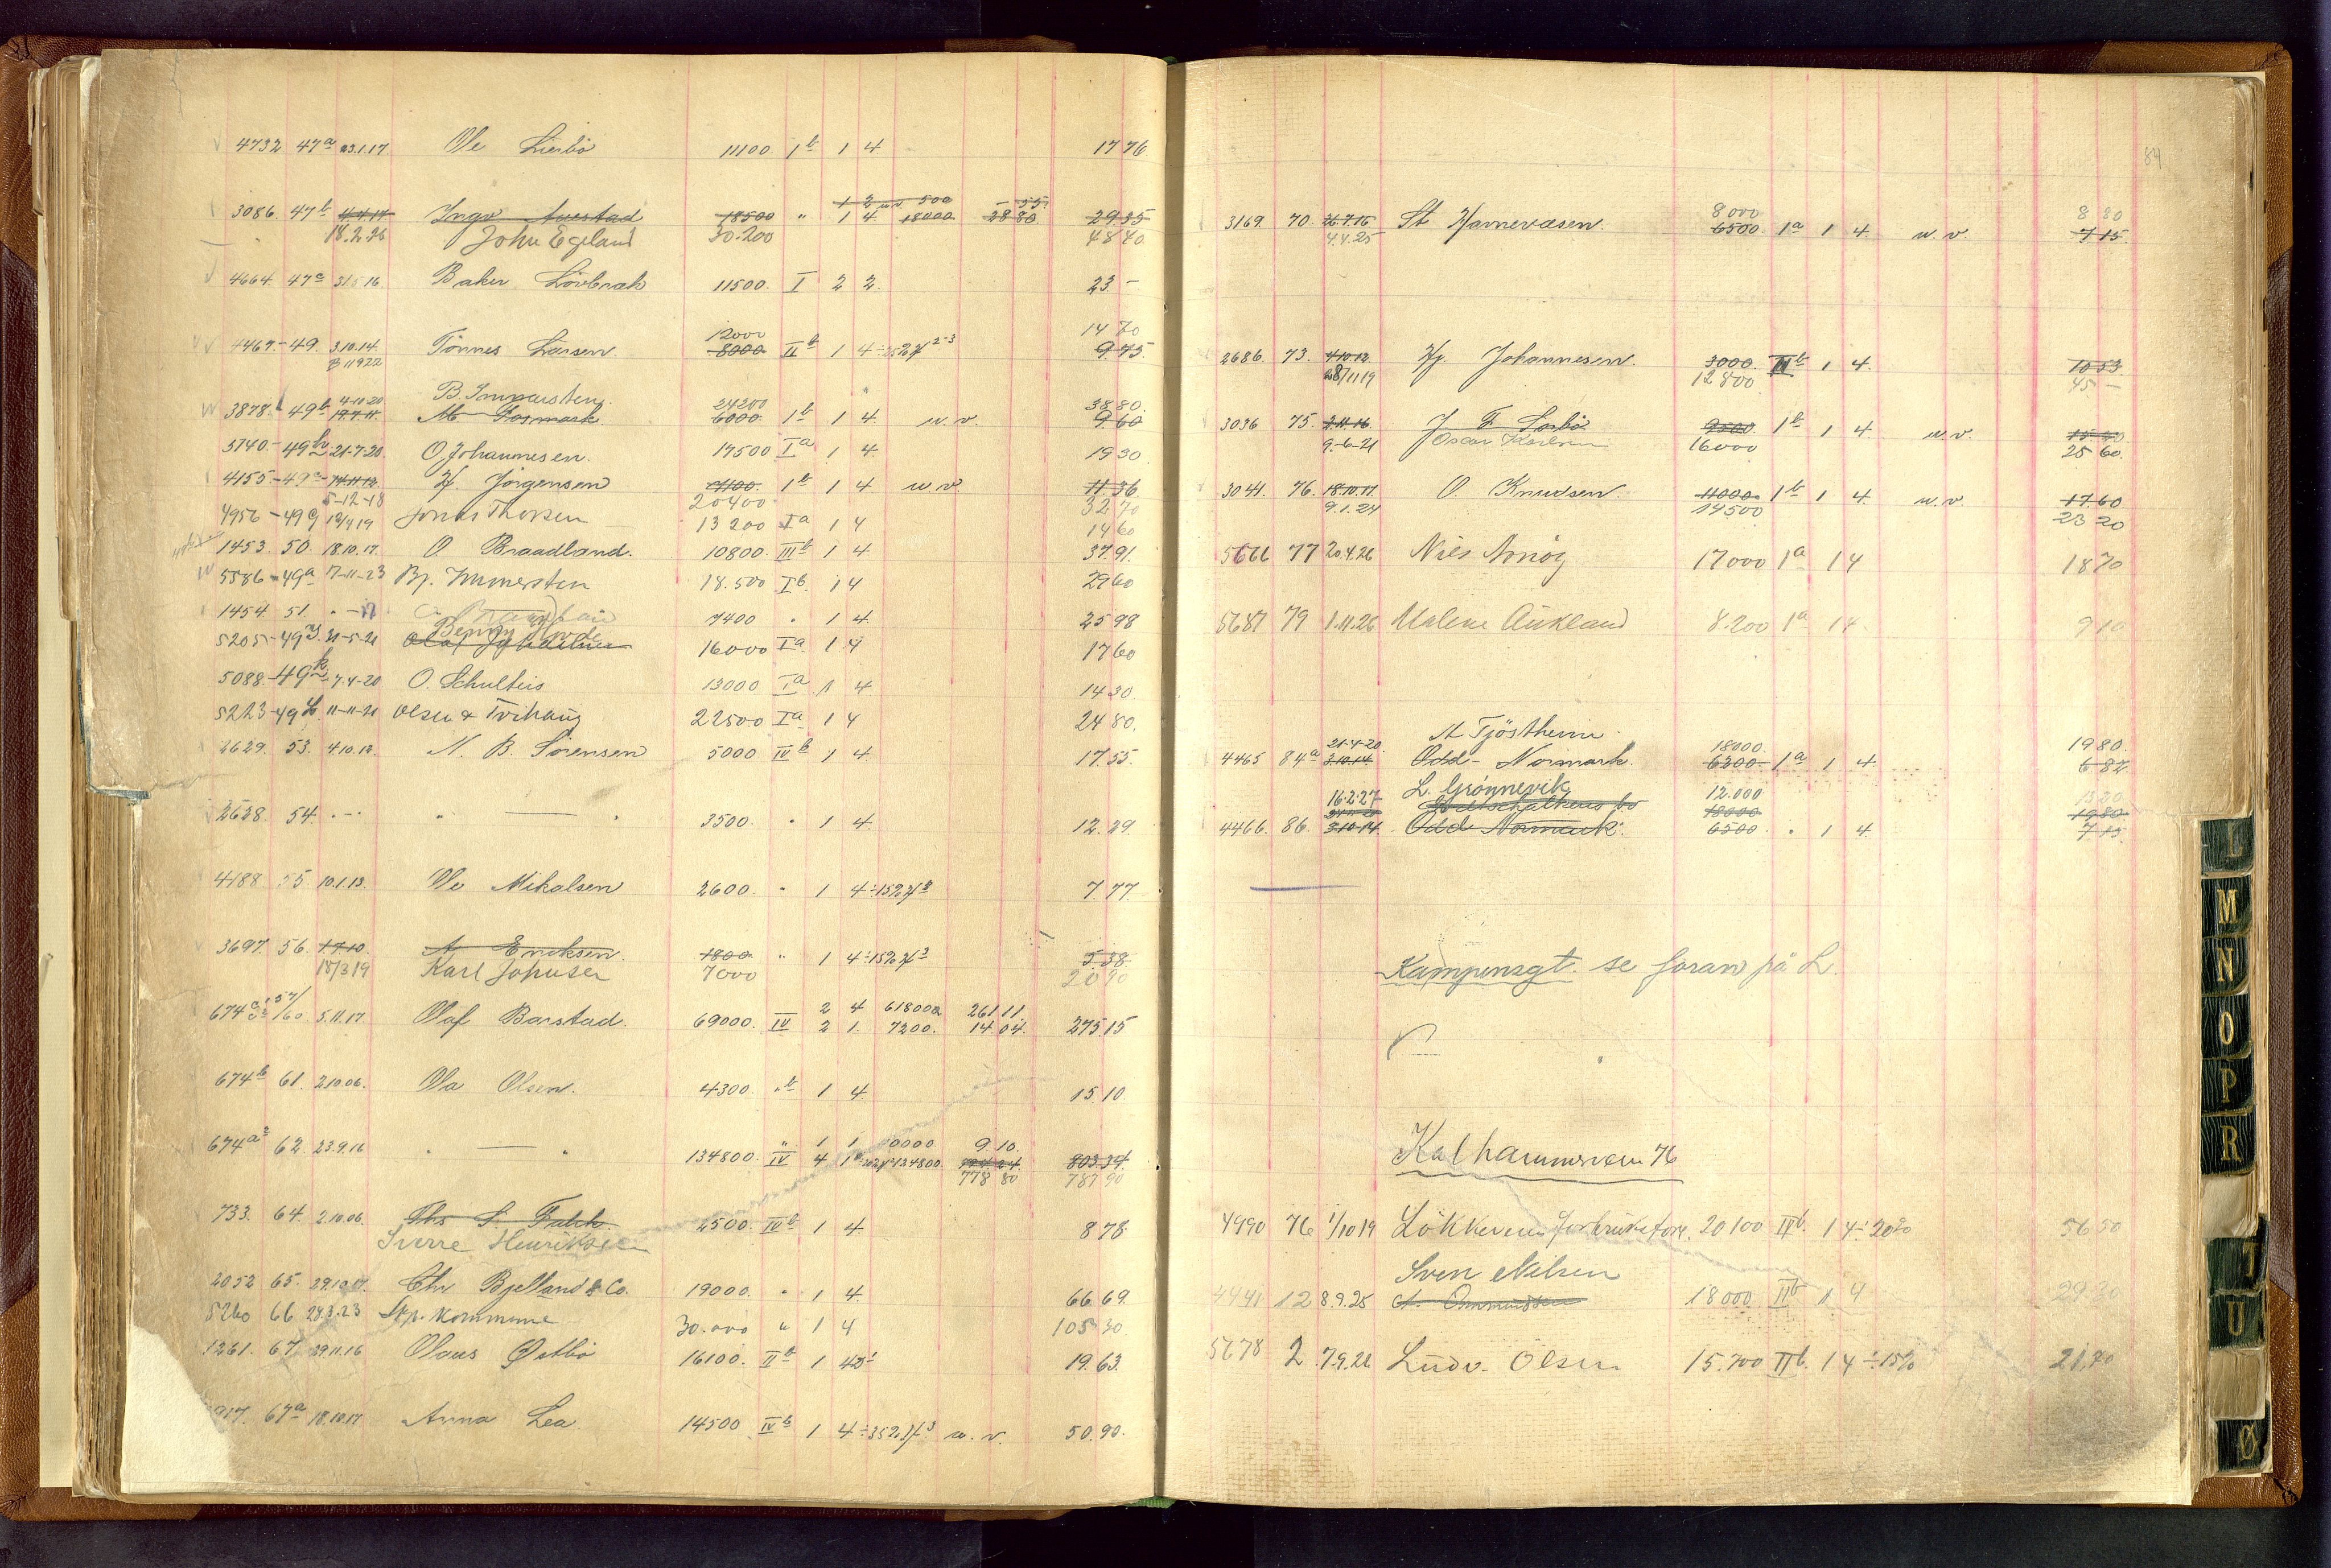 4732 47a 23.1.17 Ole Lierbö 11100. 1b 1 4 17 76
1 2 u.v. 500 - 55
3086. 47b 4.4.14 Ingv. Auestad 18500 " 1 4 18000 28 80. 29 35
18.2.26 John Egeland 30.200 48 40
4664. 47c 31.5.16. Baker Lövbrak 11500. I 2 2. 23 -
12000 14 70
4467.-49. 3.10.14. Tönnes Larsen 8000 IIb 1 4 ÷15% 2-3 9 75
1922
4-10-20 B. Immersten 24200 38 80
3878. 49b 19.7.11. M. Fosmark 6000. 1b 1 4 u.v. 9 60
5140-49 21-7-20. O. Johannesen. 17500 Ia 1 4. 19 30
4155.-49 14.11.12. H. Jörgensen 7100. 1b 1 4 u.v. 11 36
5-12-18 20400 32 70
4956-49g 12/4 19 Jonas Thorsen 13200 Ia 1 4 14 60
1453. 50. 18.10.17. O. Braadland. 10800. IIIb 1 4 37 91
5586-49a 7-11-23 Bj. Immersten 18.500 Ib. 1 4 29 60
1454. 51. " - 17 7400 " 1 4. 25 98
5205-49 21-5-21 16000 Ia 1 4 17 60
5088-49k-7.4-20 O. Schulteis 13000 Ia 1 4 14 30
5223-49 11-11-21 Olsen & Tvihaug 22500 Ia 1 4 24 80.
2629. 53. 4.10.12. N. B. Sörensen 5000 IVb 1 4. 17 55.
2628. 54. " - " " — " 3500. " 1 4. 12. 29.
4188 55 10.1.13. Ole Mikalsen 2600. " 1 4 ÷15% 3 7. 77.
3697. 56. 1.7.10. A. Eriksen. 1800. " 1 4 ÷15% 3 5.38.
18/3 19 Karl Johnsen 7000 20 90
674 57/60. 5.11.17 Olaf Barstad. 69000. IV 2 4 61800 261 11
2 1. 7200. 14 04. 275 15
674b 61. 2.10.06. Ola Olsen. 4300 "b 1 4. 15. 10
674a 62. 23.9.16 " — " " 1 1 9 10.
134800. IV 4 1 134800. 803.34.
778 80 787 90
733. 64. 2.10.06. Ths. S. Falck. 2500. IVb 1 4. 8 78
Sverre Henriksen
2052 65. 29.10.17. Chr. Bjelland & Co. 19000. " 1 4. 66 69.
5260 66 28.3.23 Stv. Kommune 30.000 " 1 4 105 30
1261. 67. 29.11.16 Olaus Østbö 16100. IIb 1 4 19. 63.
917. 67a 18.10.17 Anna Lea. 14500 IVb 1 4 ÷35% 3 u.v. 50. 90.
84
8000 8 80
3169. 70. 26.7.15 St. Havnevæsen. 6500 1a 1 4 u.v. 7 15.
4.4.25
2686. 73. 4.10.12 Hj. Johannesen. 3000. IVb 1 4. 10 53
28/11 19 12800 45 -
3036 75. 2.11.16 J. F. Lorbö 9500. 1b 1 4. u.v.
9-6-21 Oscar Karlsen 16000 25 60.
3041. 76. 18.10.17 O. Knudsen. 11000. 1b 1 4. u.v. 17.60
9.1.24 14500 23 20
5666 77 20.4.26 Nils Arnöy 17000 1a 1 4 18 70
5687 79 1.11.26 Malene Aukland 8.200 1a 1 4 9 10
A. Tjöstheim
21-4-20. 18000. 19 80.
4465 84a 3.10.14 Odd Normark. 6200 1a 1 4. 6 82
L. Grønnevik 12.000
16.2.27 18000 13 20
19 80
4466. 86. 3.10.14. Odd Normark. 6500 " 1 4. 7 15.
Kampensgt. se foran på L.
Kalhammerveien 76
4990 76 1/10 19 Lökkeveiens forbruksfore. 20100 IIb. 1 4 ÷ 20% 56 50
Sven Nilsen
4441 12 8.9.25 A. Ommundsen 18000 IIb 1 4 29 20
5678 2 7.9.26 Ludv. Olsen 15.700 IIb. 1 4 ÷15% 21,70
L
M
N
O
P
R
T
U
Ø